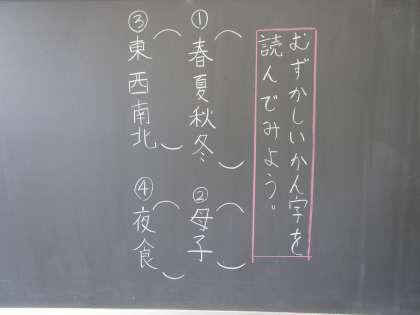 むずかしいかん字を
読んでみよう。
①春夏秋冬
②母子
③東西南北
④夜食